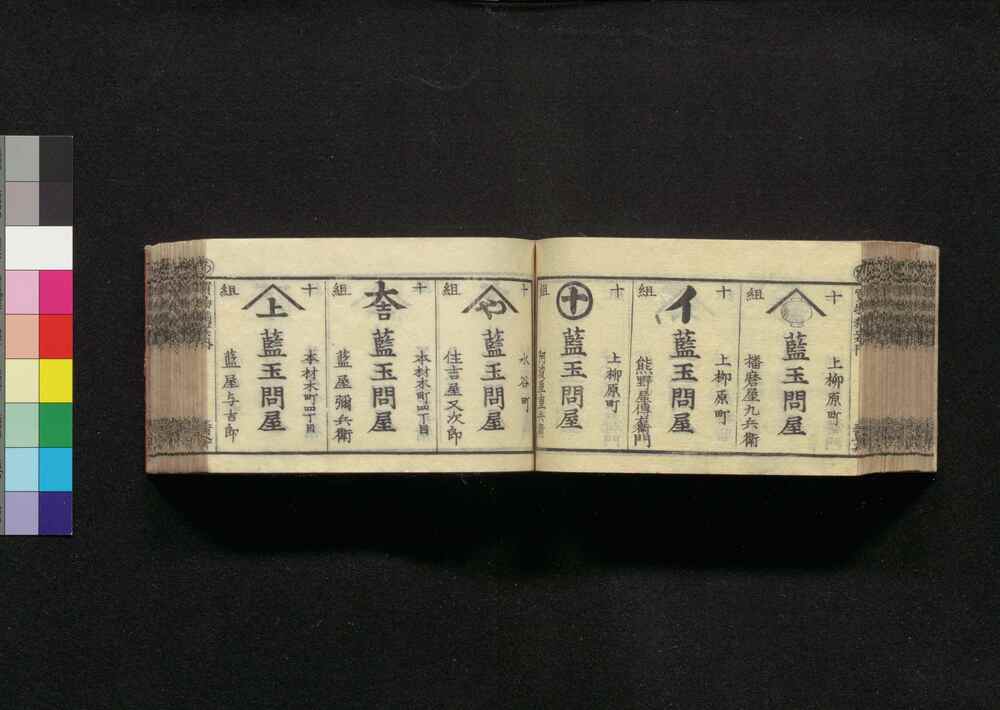 十組
上柳原町
藍玉問屋
播磨屋九兵衛
十組
上柳原町
イ
藍玉問屋
熊野屋傳右衛門
十組
上柳原町
十
藍玉問屋
十組
水谷町
や
藍玉問屋
住吉屋又次郎
十組
本材木町四丁目
大吉
藍玉問屋
藍屋彌兵衛
十組
本材木町四丁目
上
藍玉問屋
藍屋与吉郎